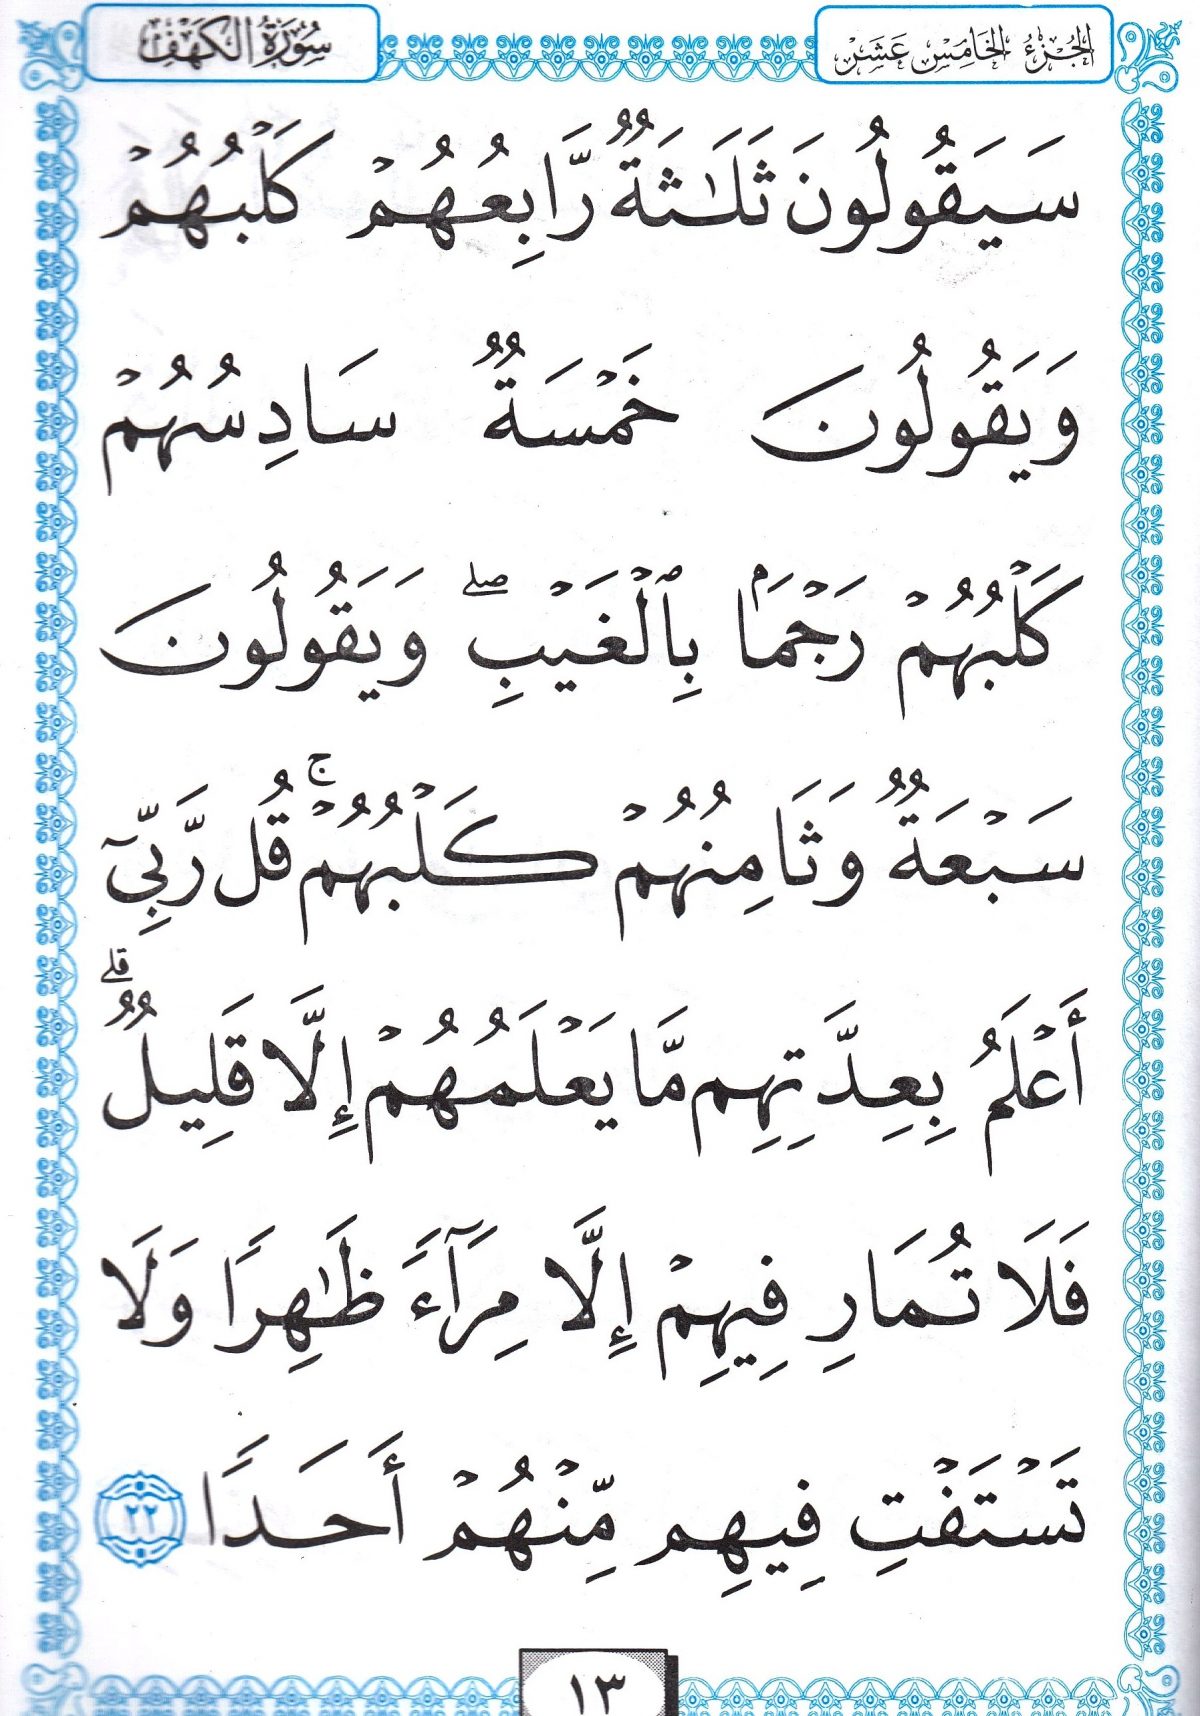 الجُزْءُ الخَامِسَ عَشَرَ
سُورَةُ الكَهْفِ
سَيَقُولُونَ ثَلَٰثَةٌ رَّابِعُهُمْ كَلْبُهُمْ
وَيَقُولُونَ خَمْسَةٌ سَادِسُهُمْ
كَلْبُهُمْ رَجْمَۢا بِٱلْغَيْبِ ۖ وَيَقُولُونَ
سَبْعَةٌ وَثَامِنُهُمْ كَلْبُهُمْ ۚ قُل رَّبِّىٓ
أَعْلَمُ بِعِدَّتِهِم مَّا يَعْلَمُهُمْ إِلَّا قَلِيلٌ ۗ
فَلَا تُمَارِ فِيهِمْ إِلَّا مِرَآءً ظَٰهِرًا وَلَا
تَسْتَفْتِ فِيهِم مِّنْهُمْ أَحَدًا ٢٢
١٣